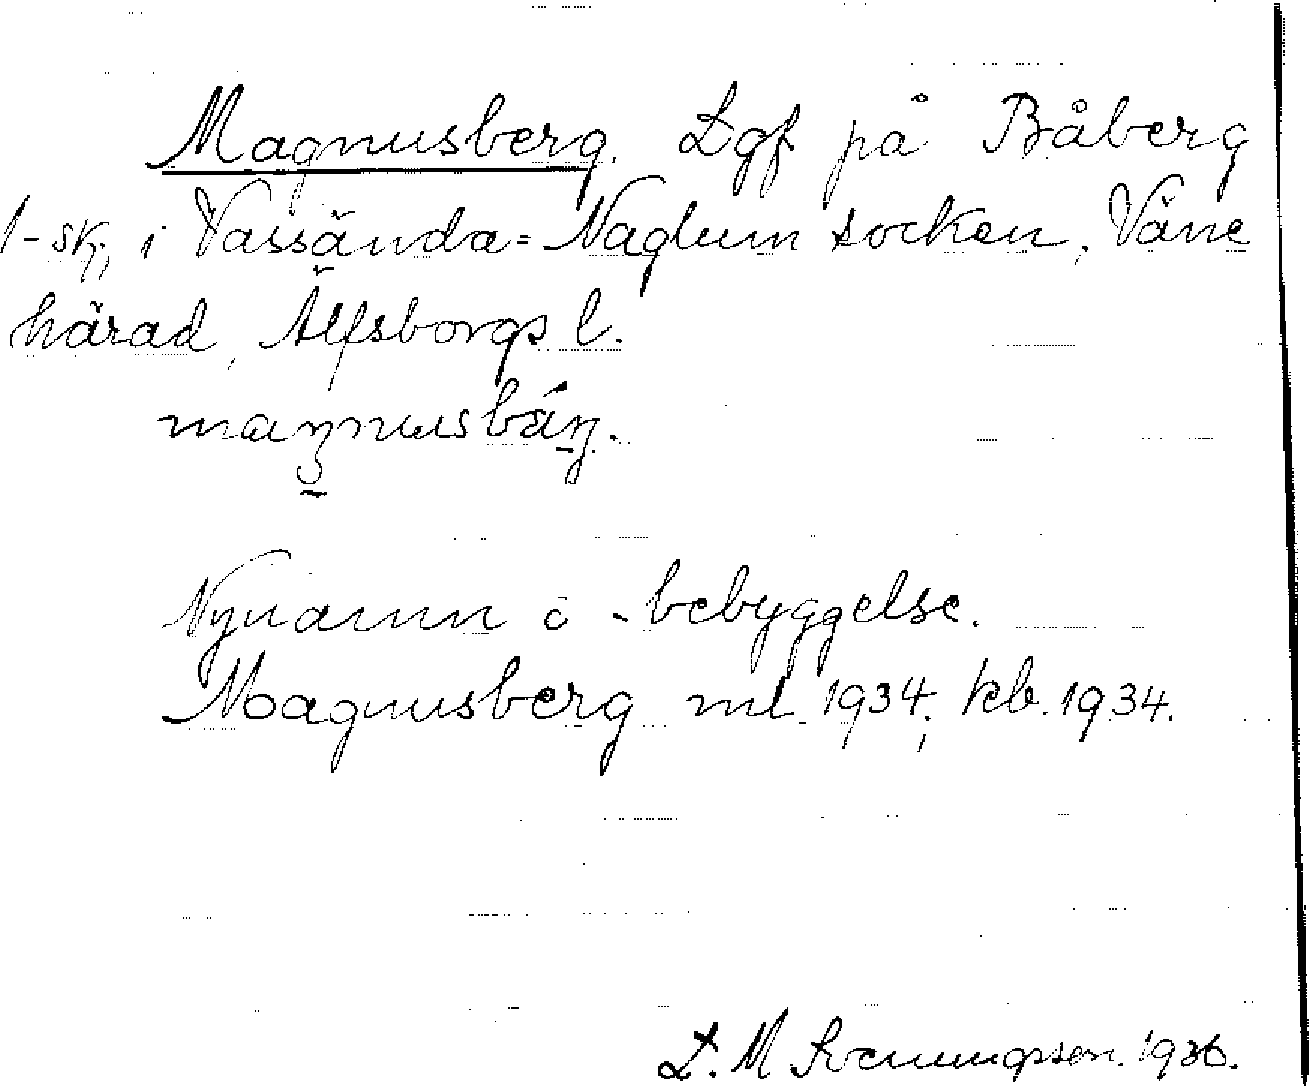 Magnusberg. Lgf på Båberg
1-sk., i Vassända-Naglum socken, Väne
härad, Älfsborgs l.
Nynamn o -bebyggelse.
Magnusberg ml. 1934; kb. 1934.
L. M Svenungsson. 1936.